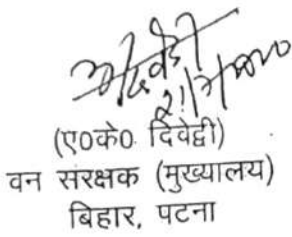 (ए०के०. दिवेद्वी)
वन संरक्षक (मुख्यालय)
बिहार, पटना